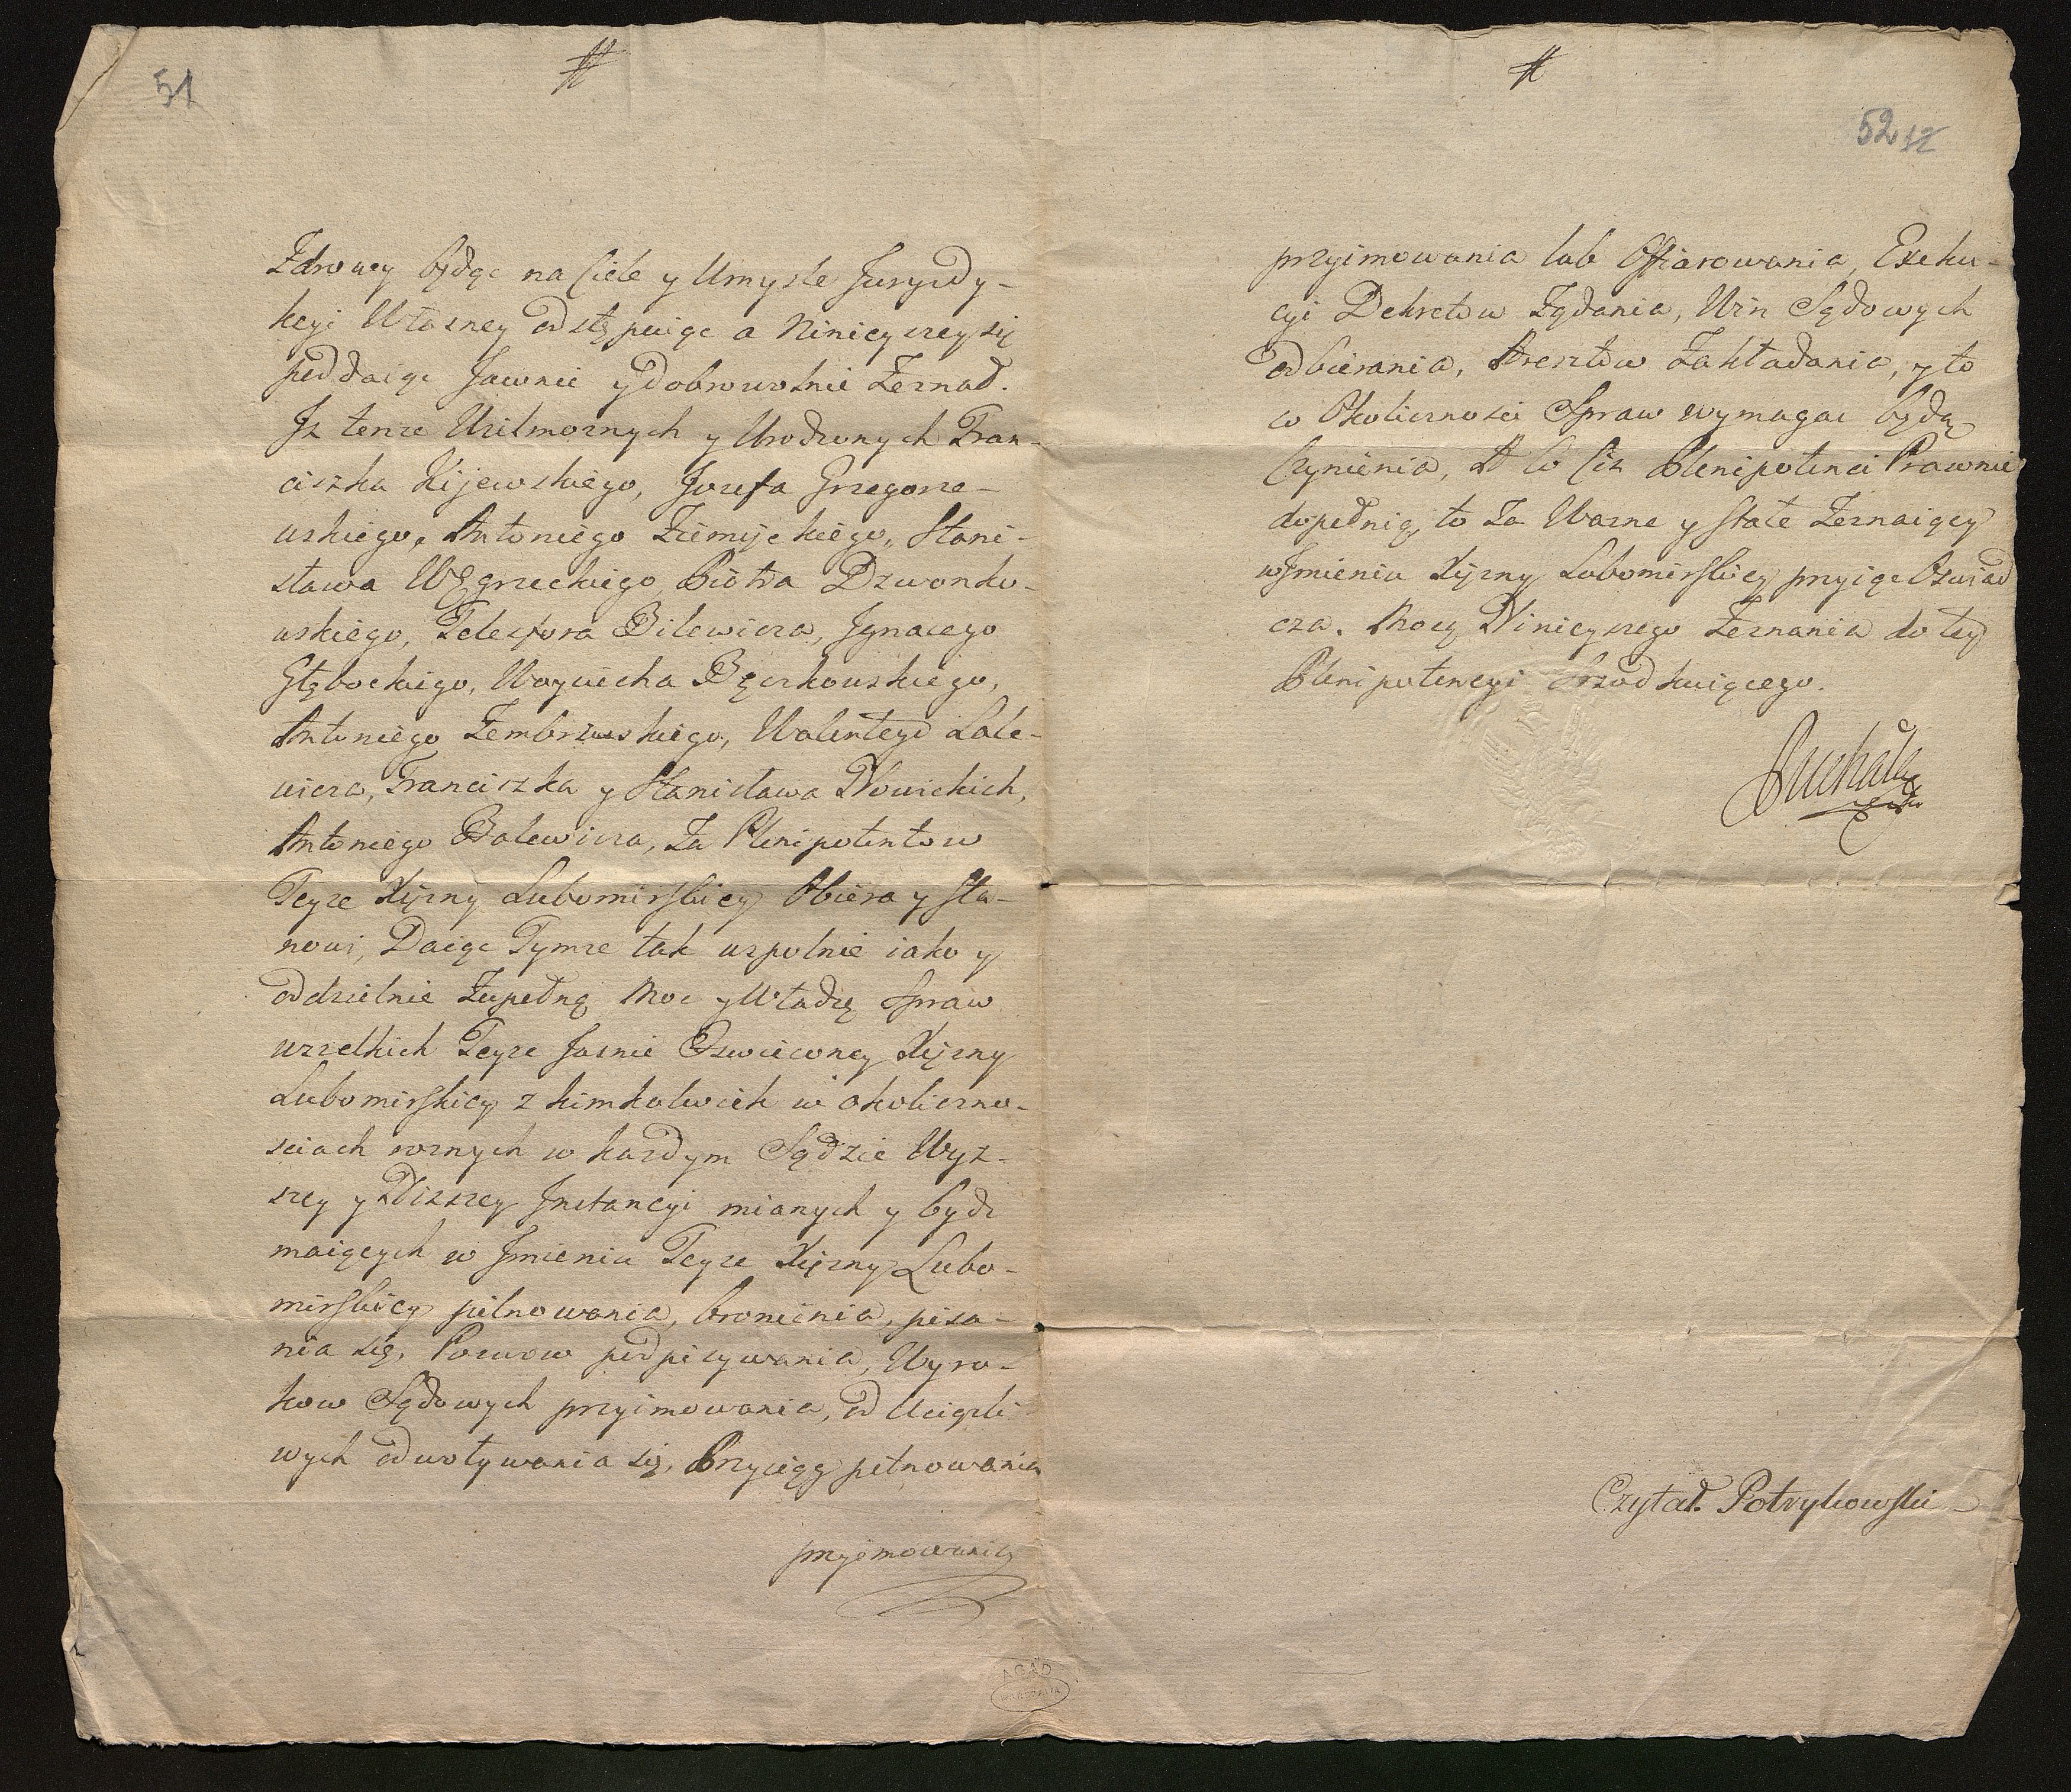 51
Zdrowy będąc na Ciele y Umysle Juryzdy-
kcyi Własney odstępuiąc a Ninieyszey się
poddaiąc Jawnie y dobrowolnie Zeznał.
Iż tenże Urz. Wielmoznych y Urodzonych Fran-
ciszka Kijewskiego, Jozefa Grzegorze-
wskiego, Antoniego Ziemięckiego, Stani-
sława Węgrzeckiego, Piotra Dzwonko-
wskiego, Telesfora Bilewicza, Ignacego
Głębockiego, Woyciecha Bęczkowskiego,
Antoniego Zembrzuskiego, Walentego Lale-
wicza, Franciszka y Stanisława Nowickich,
Antoniego Balewicza, Za Plenipotentow
Teyże Xiężny Lubomirskiey Obiera y Sta-
nowi, Daiąc Tymże tak wspolnie iako y
oddzielnie Zupełną Moc y Władzę Spraw
wszelkich Teyże Jasnie Oswieconey Xiężny
Lubomirskiey z kimkolwiek w okoliczno-
sciach roznych w kazdym Sądzie Wyz-
szey y Nizszey Instancyi mianych y bydz
maiących w Imieniu Teyże Xiężny Lubo-
mirskiey pilnowania, bronienia, pisa-
nia się, Pozwow podpisywania, Wyro-
kow Sądowych przyimowania, od Uciązli-
wych odwoływania się, Przysiąg pilnowania
przyimowania
52
przyimowania lub Offiarowania, Exeku-
cyi Dekretow Ządania, Win Sądowych
odbierania, Aresztow Zakładania, y to
co Okolicznosci Spraw wymagac będą
Czynienia, A co Ciz Plenipotenci Prawnie
dopełnią, to Za Wazne y stałe Zeznaiący
w Imieniu Xiężny Lubomirskiey przyiąc Oswiad
cza. Mocą Ninieyszego Zeznania do tey
Plenipotencyi Srzodkuiącego.
Czytał. Potrykowski
AGAD
WARSZAWA